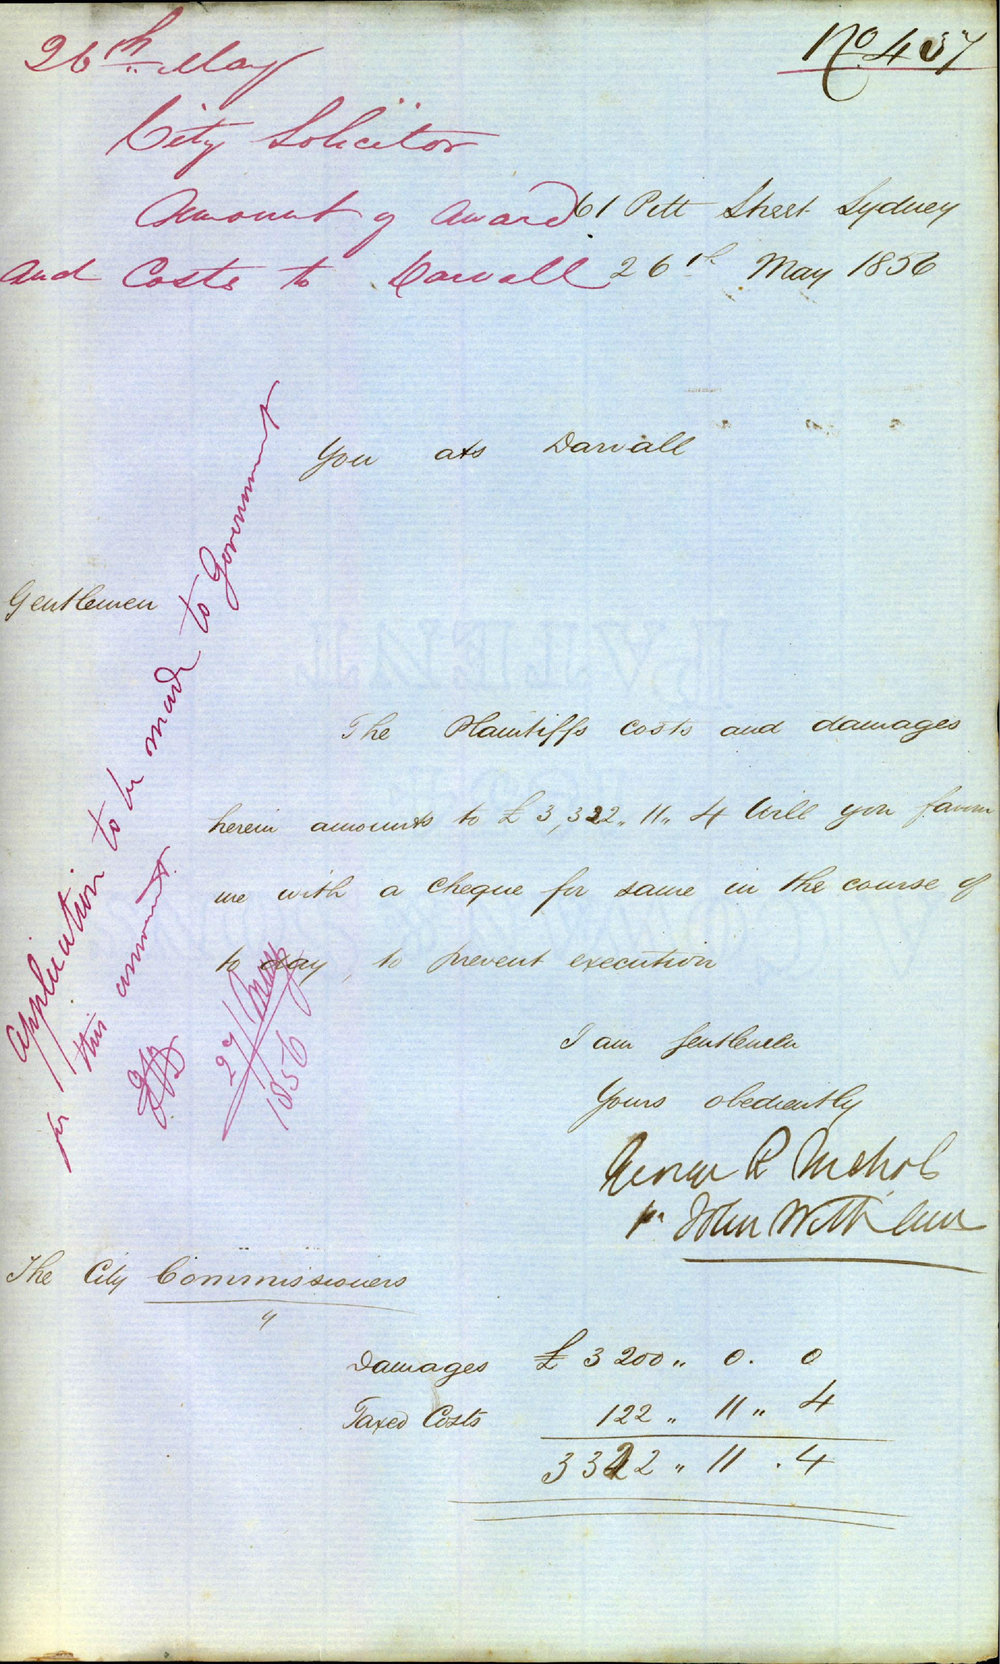 26th May
No. 437
City Solicitor
Amount of award
and Costs to Darvall
61 Pitt Street Sydney
26th May 1856
You ats Darvall
Gentlemen
The Plaintiffs costs and damages
herein amounts to £3,322„ 11„ 4 Will you favour
me with a cheque for same in the course of
to day, to prevent execution
I am Gentlemen
Yours obediently
George R Nichols
pr John Williams
The City Commissioners
Damages £ 3200„ 0. 0
Taxed Costs 122„ 11„ 4
3322„ 11. 4
Application to be made to Government
for this amount.
27/May
1856